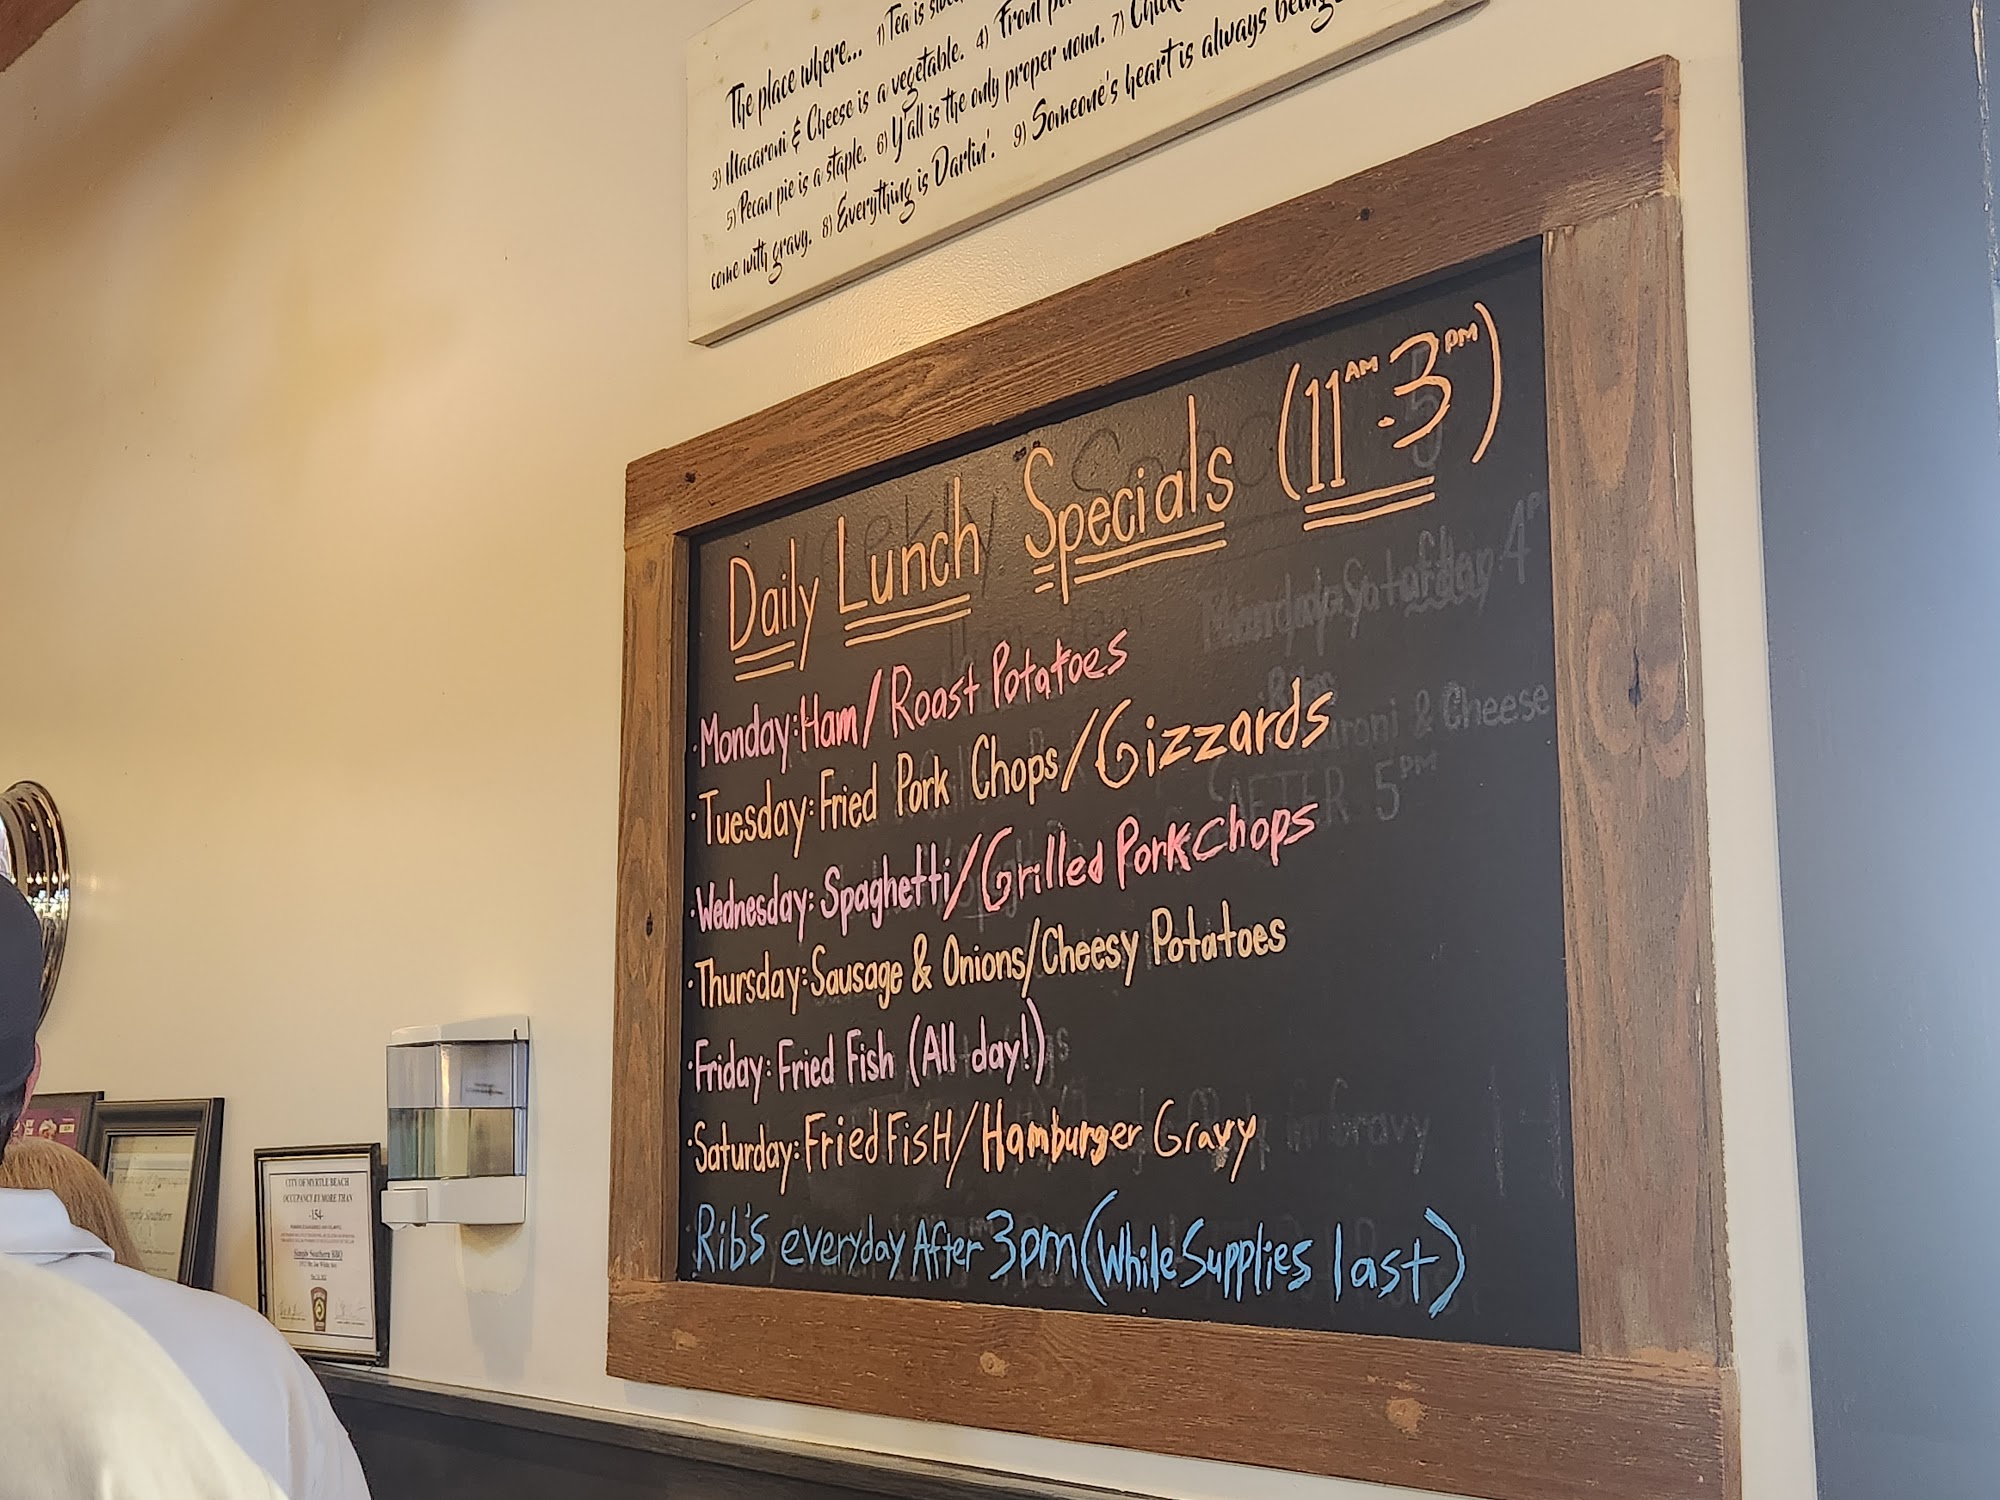 The place where... 1) Tea is
3) Macaroni & Cheese is a vegetable. 4) Front
5) Pecan pie is a staple. 6) Y'all is the only proper noun. 7)
come with gravy. 8) Everything is Darlin'. 9) Someone's heart is always being
Daily Lunch Specials (11AM-3PM)
·Monday: Ham/Roast Potatoes
·Tuesday: Fried Pork Chops/Gizzards
·Wednesday: Spaghetti/Grilled Pork Chops
·Thursday: Sausage & Onions/Cheesy Potatoes
·Friday: Fried Fish (All day!)
·Saturday: Fried FisH/Hamburger Gravy
Rib's everyday After 3pm (While Supplies last)
Saturday 4
& Cheese
AFTER 5PM
Gravy
CITY OF MYRTLE BEACH
OCCUPANCY BY MORE THAN
-154-
Simply Southern BBQ
Simply Southern